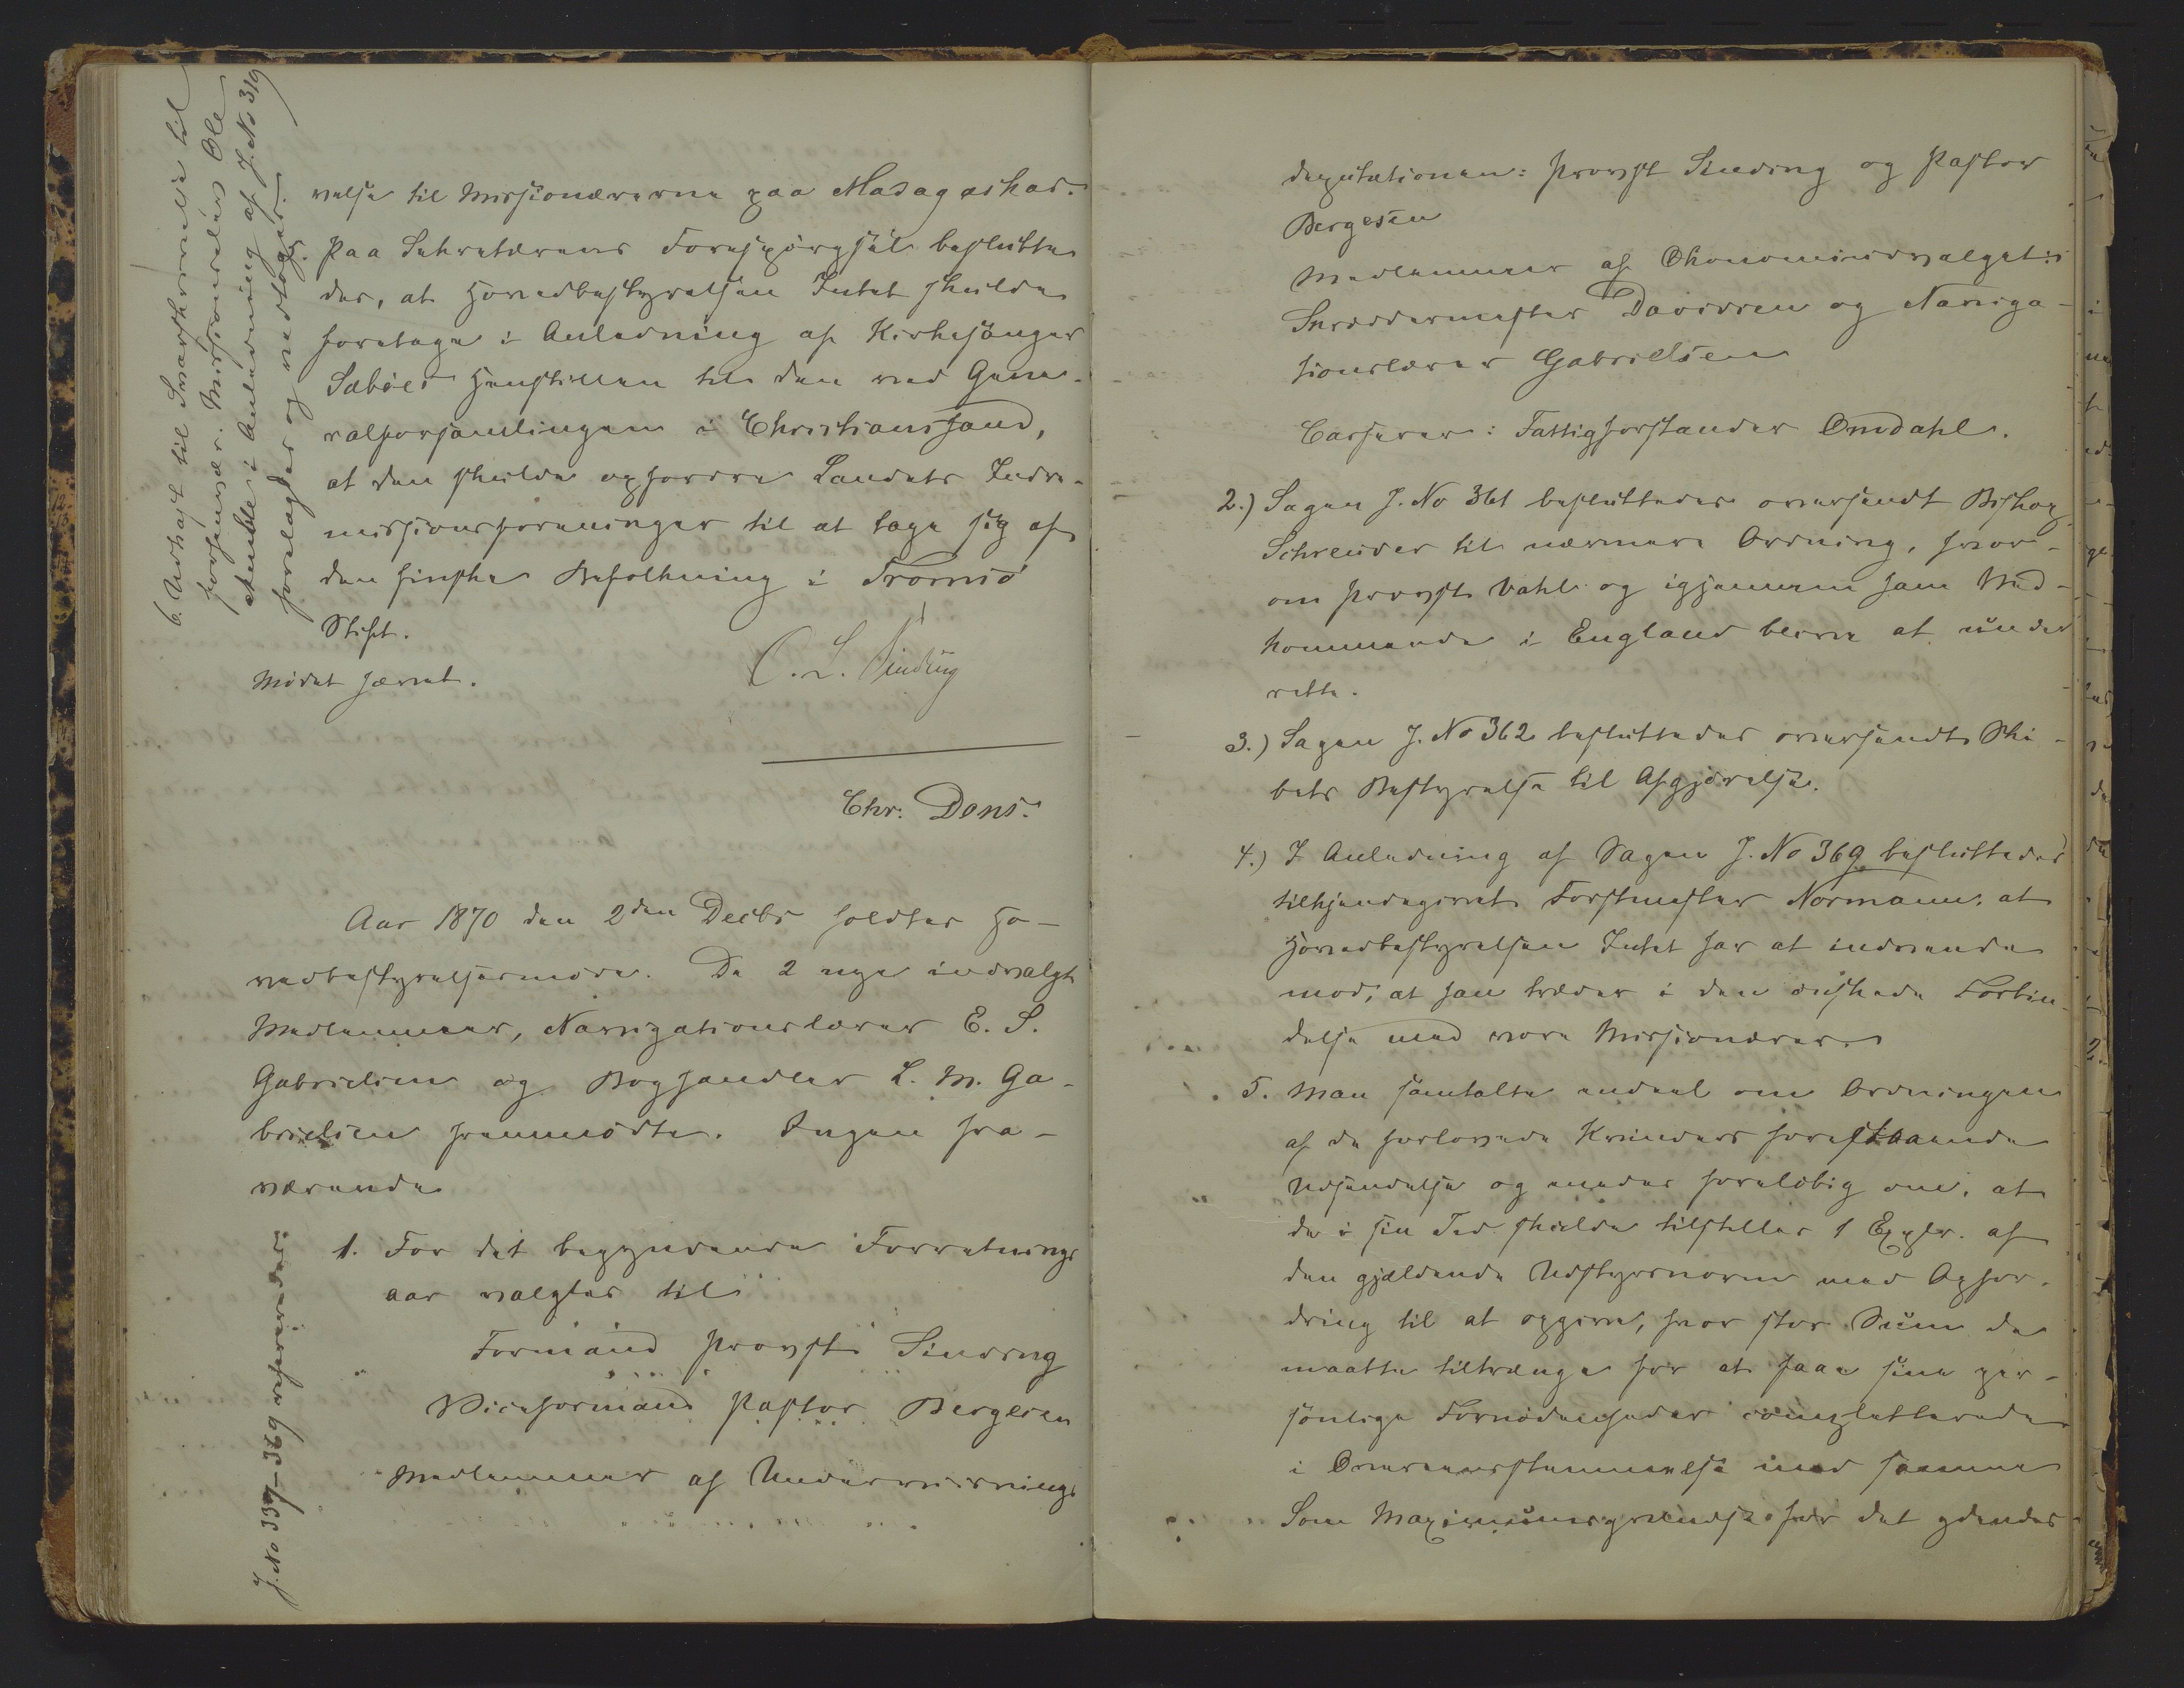 6. Udkast til Svarskrivelse til
forhenvær. Missionselev Ole
Stenble i Anledning af J. No 319
forelagdes og vedtoges.
velse til Missionærerne paa Madagaskar.
5. Paa Sekretærens Forespörgsel beslutte-
des, at Hovedbestyrelsen Intet skulde
foretage i Anledning af Kirkesanger
Säböes Henstillen til den ved Gene-
ralforsamlingen i Christianssand,
at den skulde opfordre Landets Indre-
missionsforeninger til at tage sig af
den finske Befolkning i Tromsö
Stift.
Mödet hævet.
C. L. Sinding
Chr. Dons.
Aar 1870 den 2den Decbr holdtes Ho-
vedbestyrelsesmöde. De 2 nye indvalgte
Medlemmer, Navigationslærer E. S.
Gabrielsen og Boghandler L. M. Ga-
brielsen fremmödte. Ingen fra-
værende
J. No 337-369 refereredes.
1. For det begyndende Forretnings
aar valgtes til
Formand Provst Sinding
Viceformand Pastor Bergesen
Medlemmer af Undervisnings
deputationen: Provst Sinding og Pastor
Bergesen
Medlemmer af Ökonomiudvalget:
Skræddermester Davidsen og Naviga-
tionslærer Gabrielsen
Casserer: Fattigforstander Omdahl.
2.) Sagen J. No 361 besluttedes oversendt Biskop
Schreuder til nærmere Ordning, hvor-
om Provst Vahl og igjennem ham Ved-
kommende i England bliver at under
rette.
3.) Sagen J. No 362 besluttedes oversendt Ski-
bets Bestyrelse til Afgjörelse.
4.) I Anledning af Sagen J. No 369 besluttedes
tilkjendegivet Forstmester Normann, at
Hovedbestyrelsen Intet har at indvende
mod, at han træder i den önskede Forbin-
delse med vore Missionærer.
5. Man samtalte endeel om Ordningen
af de forlovede Kvinders forestaaende
Udsendelse og enedes forelöbig om, at
de i sin Tid skulde tilstilles 1 Explr. af
den gjældende Udstyrsnorm med Opfor-
dring til at opgive, hvor stor Sum de
maatte tiltrænge for at faae sine per-
sonlige Fornödenheder completterede
i Overensstemmelse med samme
Som Maximumsgrændse for det ydendes